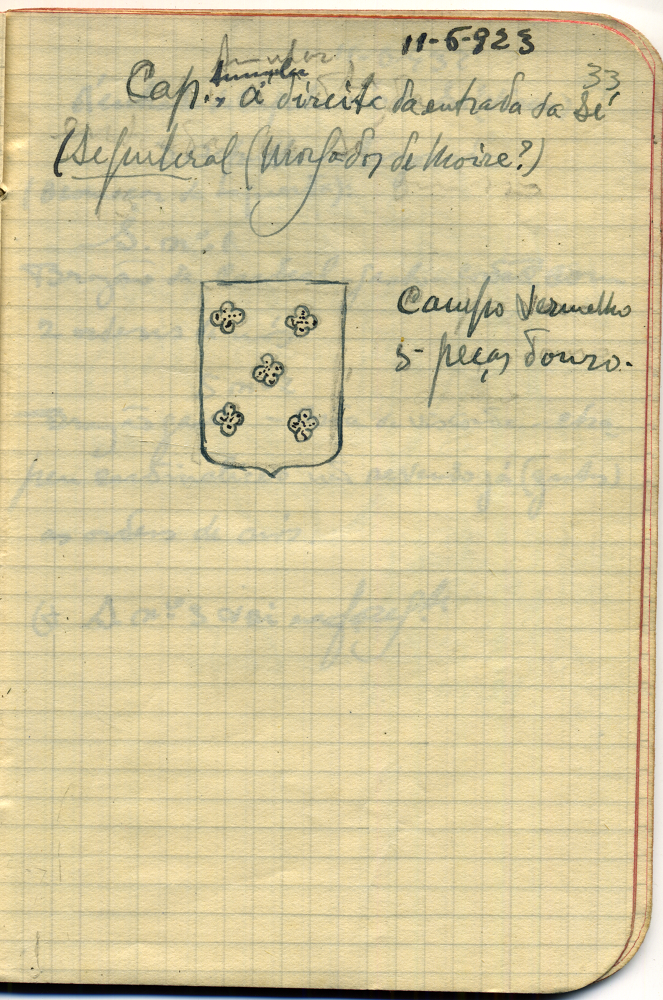 11-6-923
33
Cap. á direita da entrada da Sé
(Sepulcral (Morgados de Moire?)
Campo Vermelho
5 peças d'ouro.